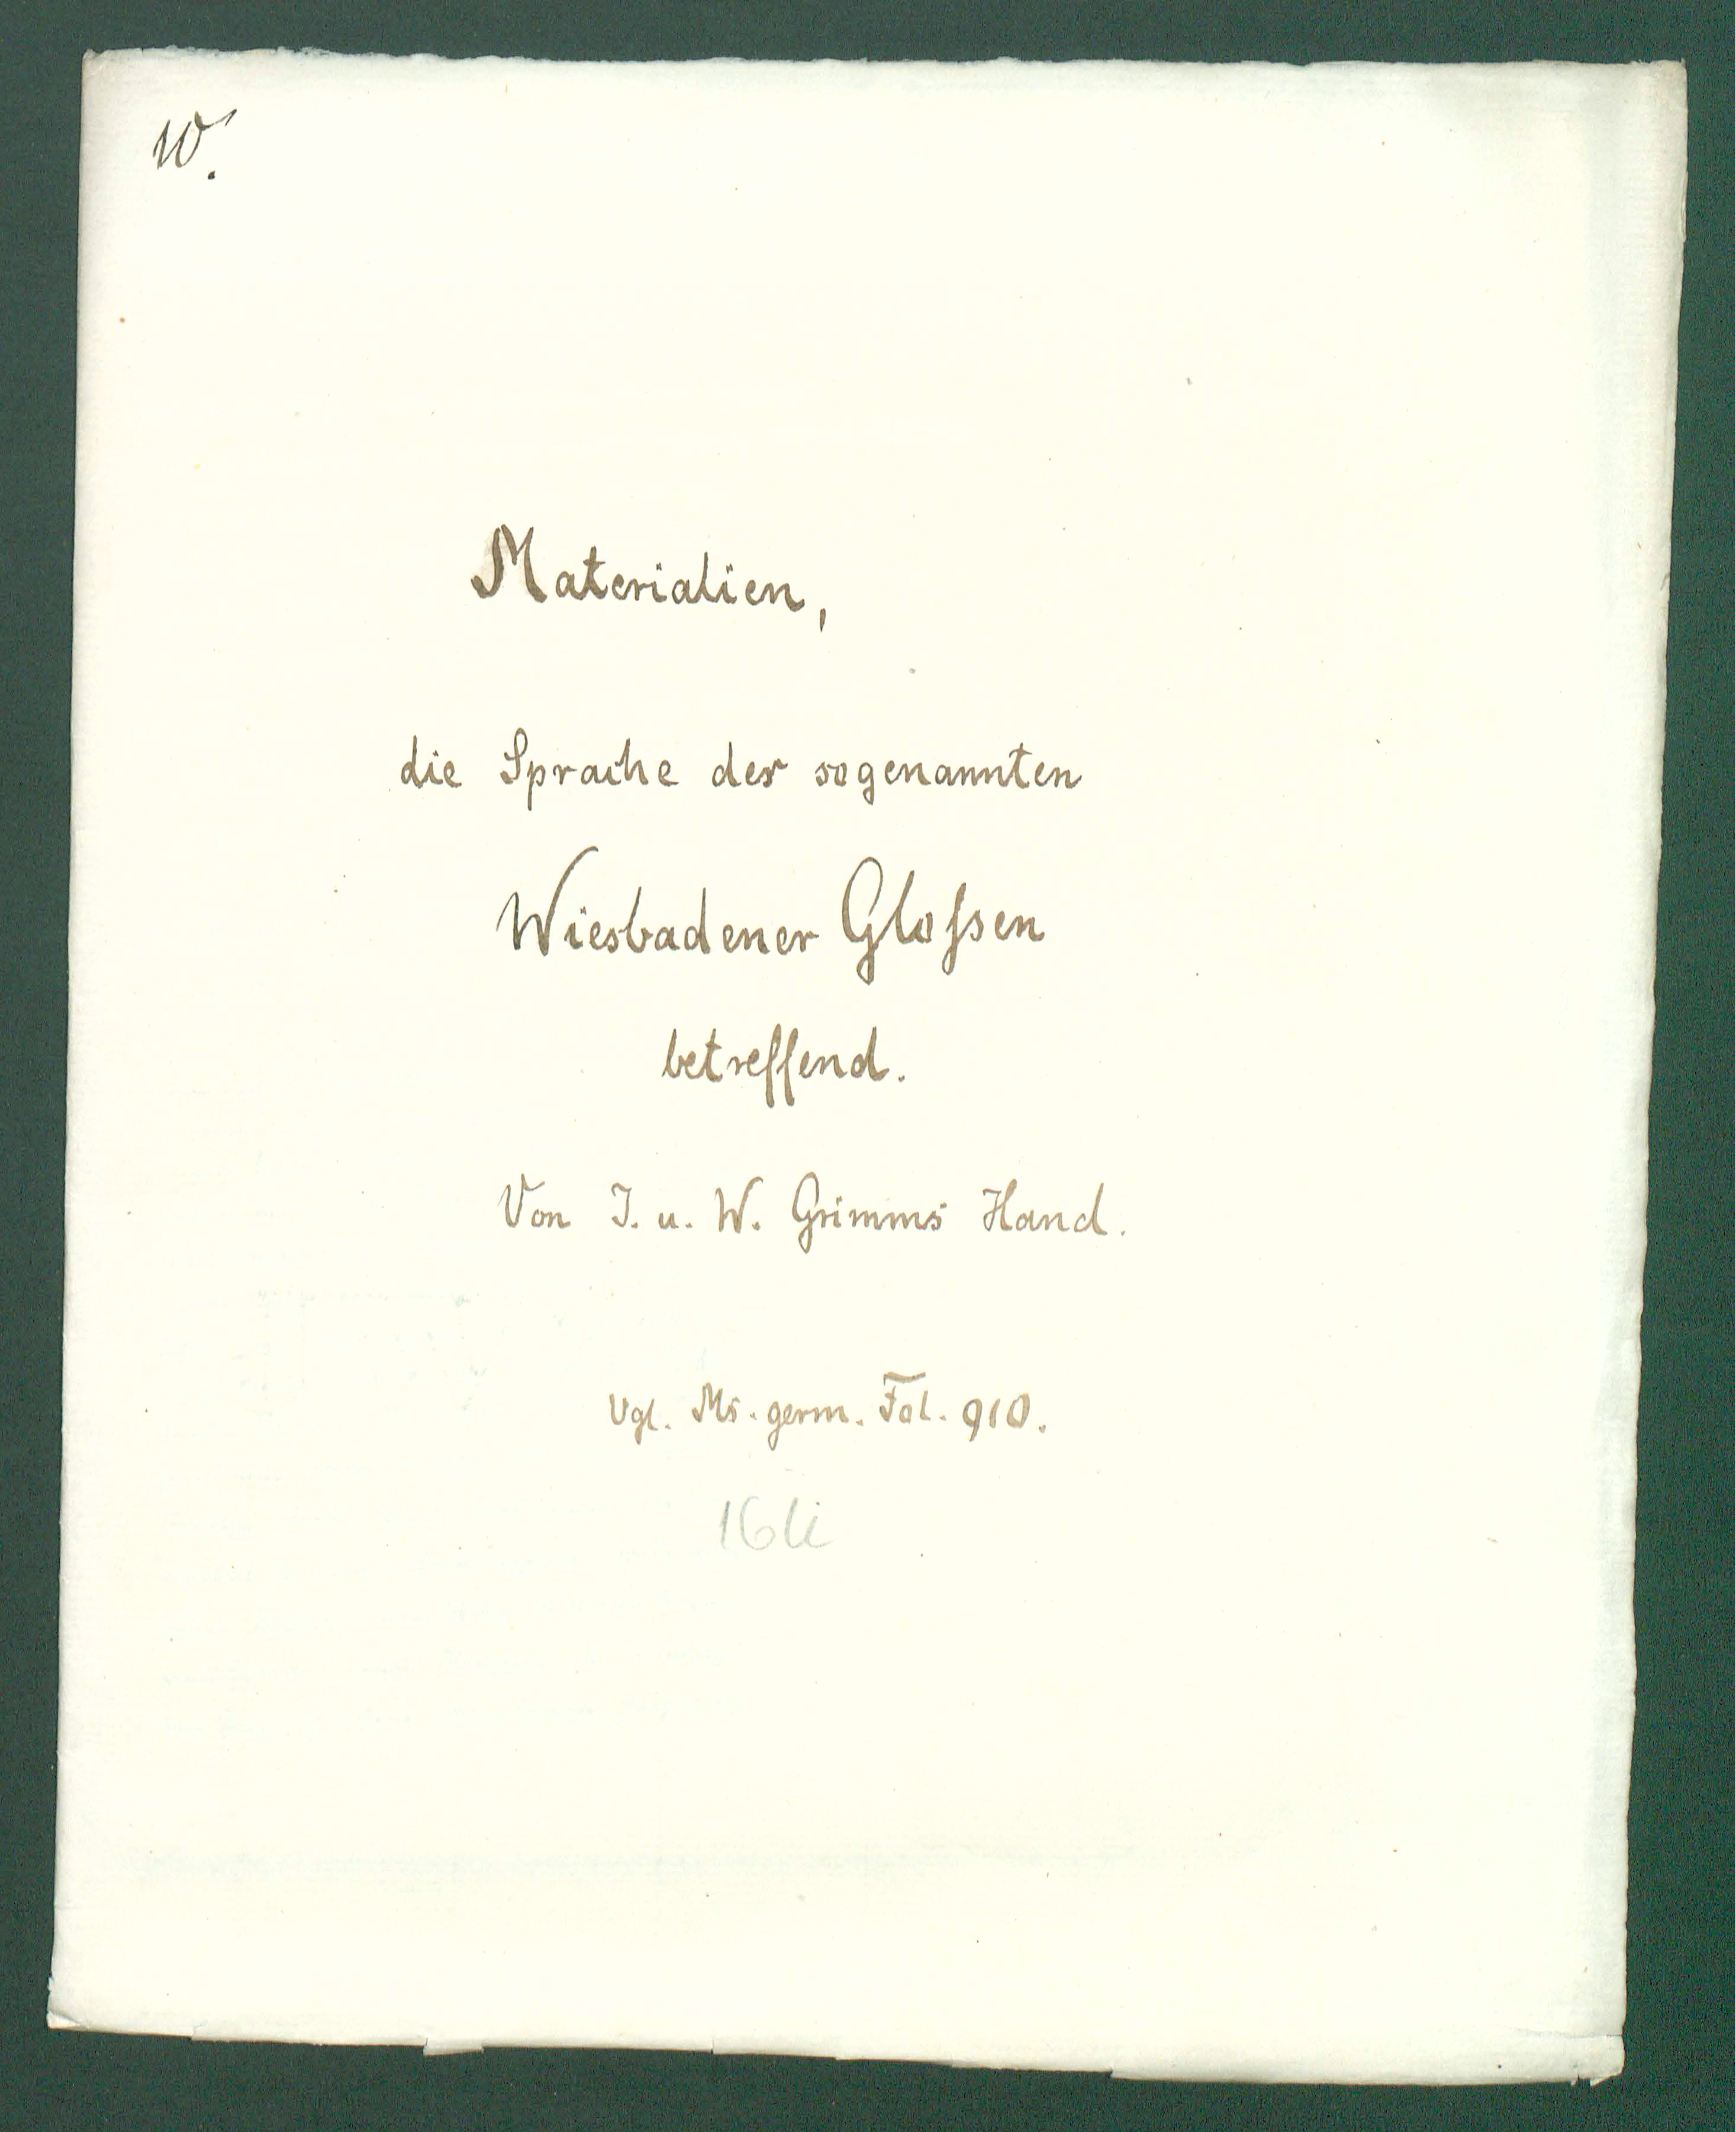 W.
Materialien,
die Sprache der sogenannten
Wiesbadener Gloſsen
betreffend.
Von J. u. W. Grimms Hand.
Vgl. Ms. germ. Fol. 910.